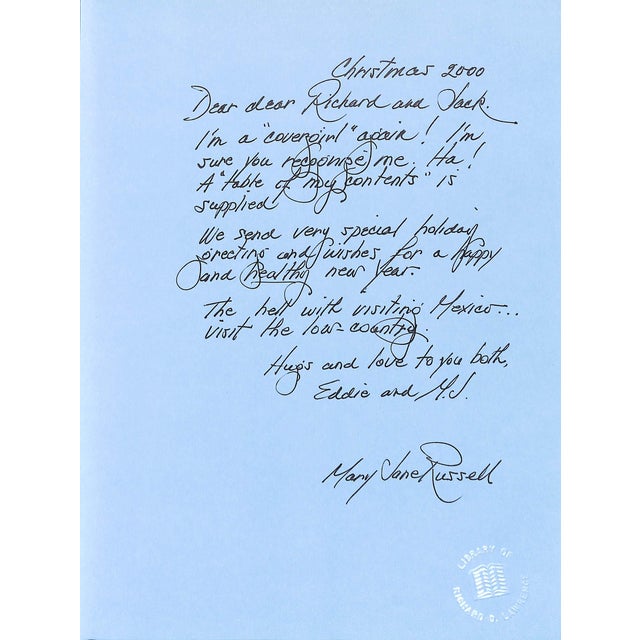 Christmas 2000
Dear dear Richard and Jack.
I'm a "covergirl" again! I'm
sure you recognize me. Ha!
A "table of my contents" is
supplied!
We send very special holiday
greeting and wishes for a happy
and healthy new year.
The hell with visiting Mexico...
visit the low-country.
Hugs and love to you both,
Eddie and M.J.
Mary Jane Russell
LIBRARY OF
RICHARD D.